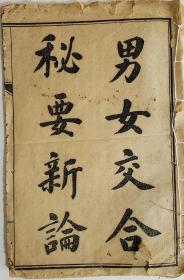 男女交合
秘要新論